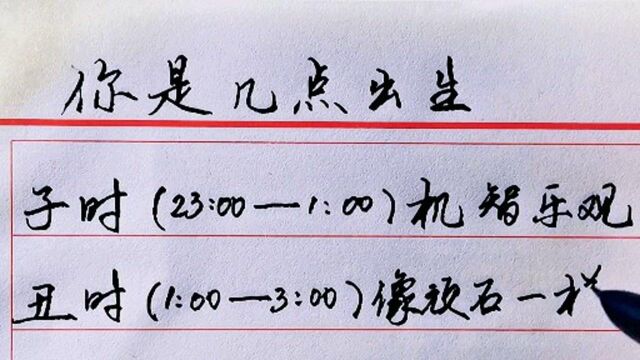 你是几点出生
子时(23:00—1:00)机智乐观
丑时(1:00—3:00)像顽石一